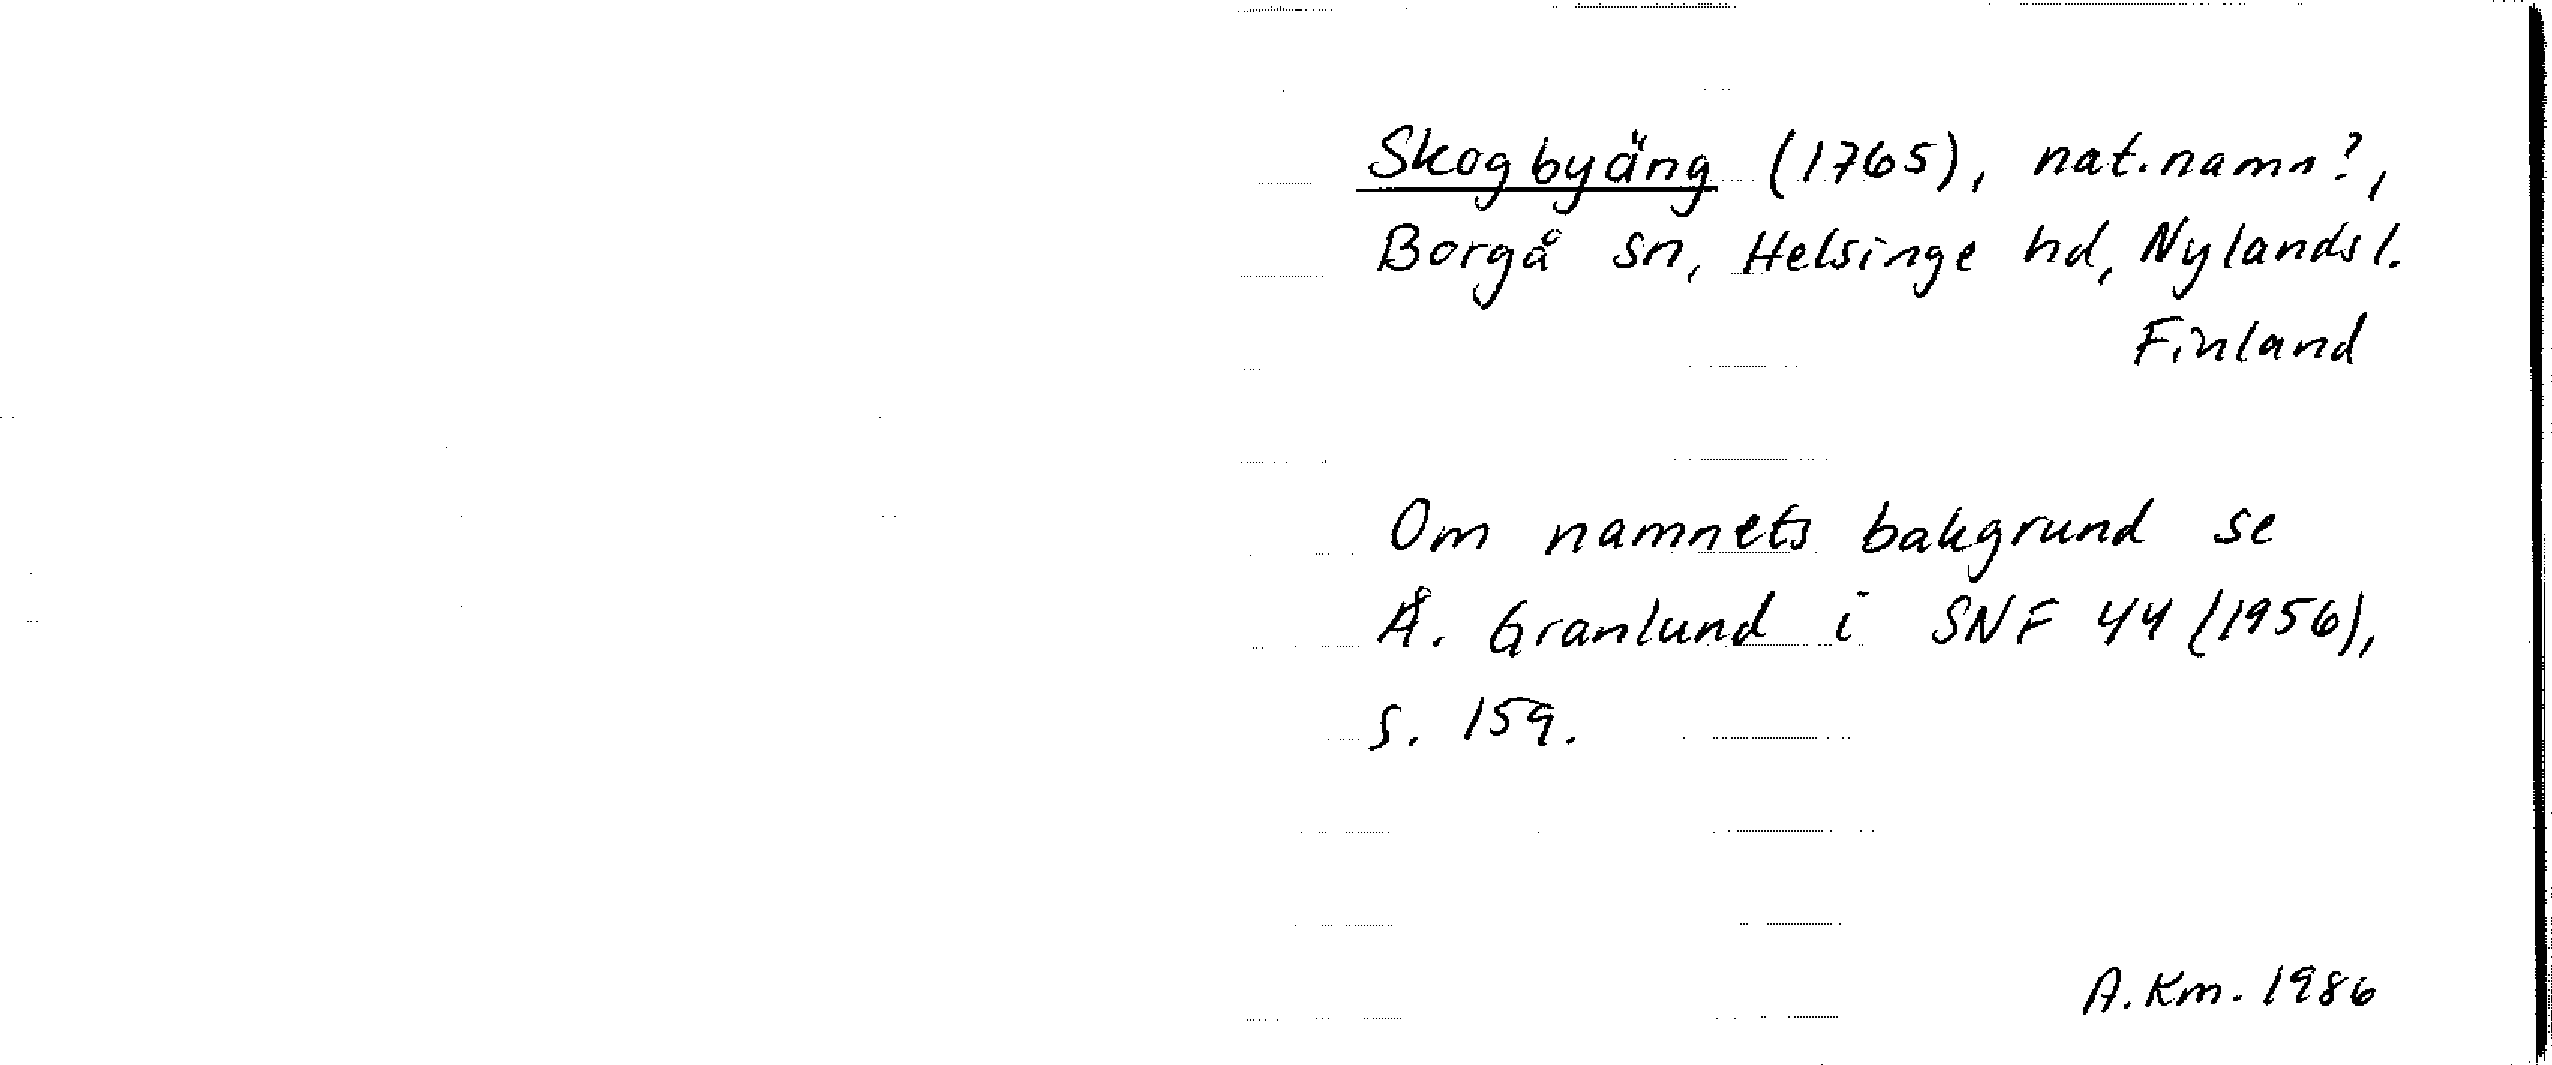 Skogbyäng (1765), nat.namn?,
Borgå sn, Helsinge hd, Nylands l.
Finland
Om namnets bakgrund se
Å. Granlund i SNF 44 (1956),
s. 159.
A.Km. 1986